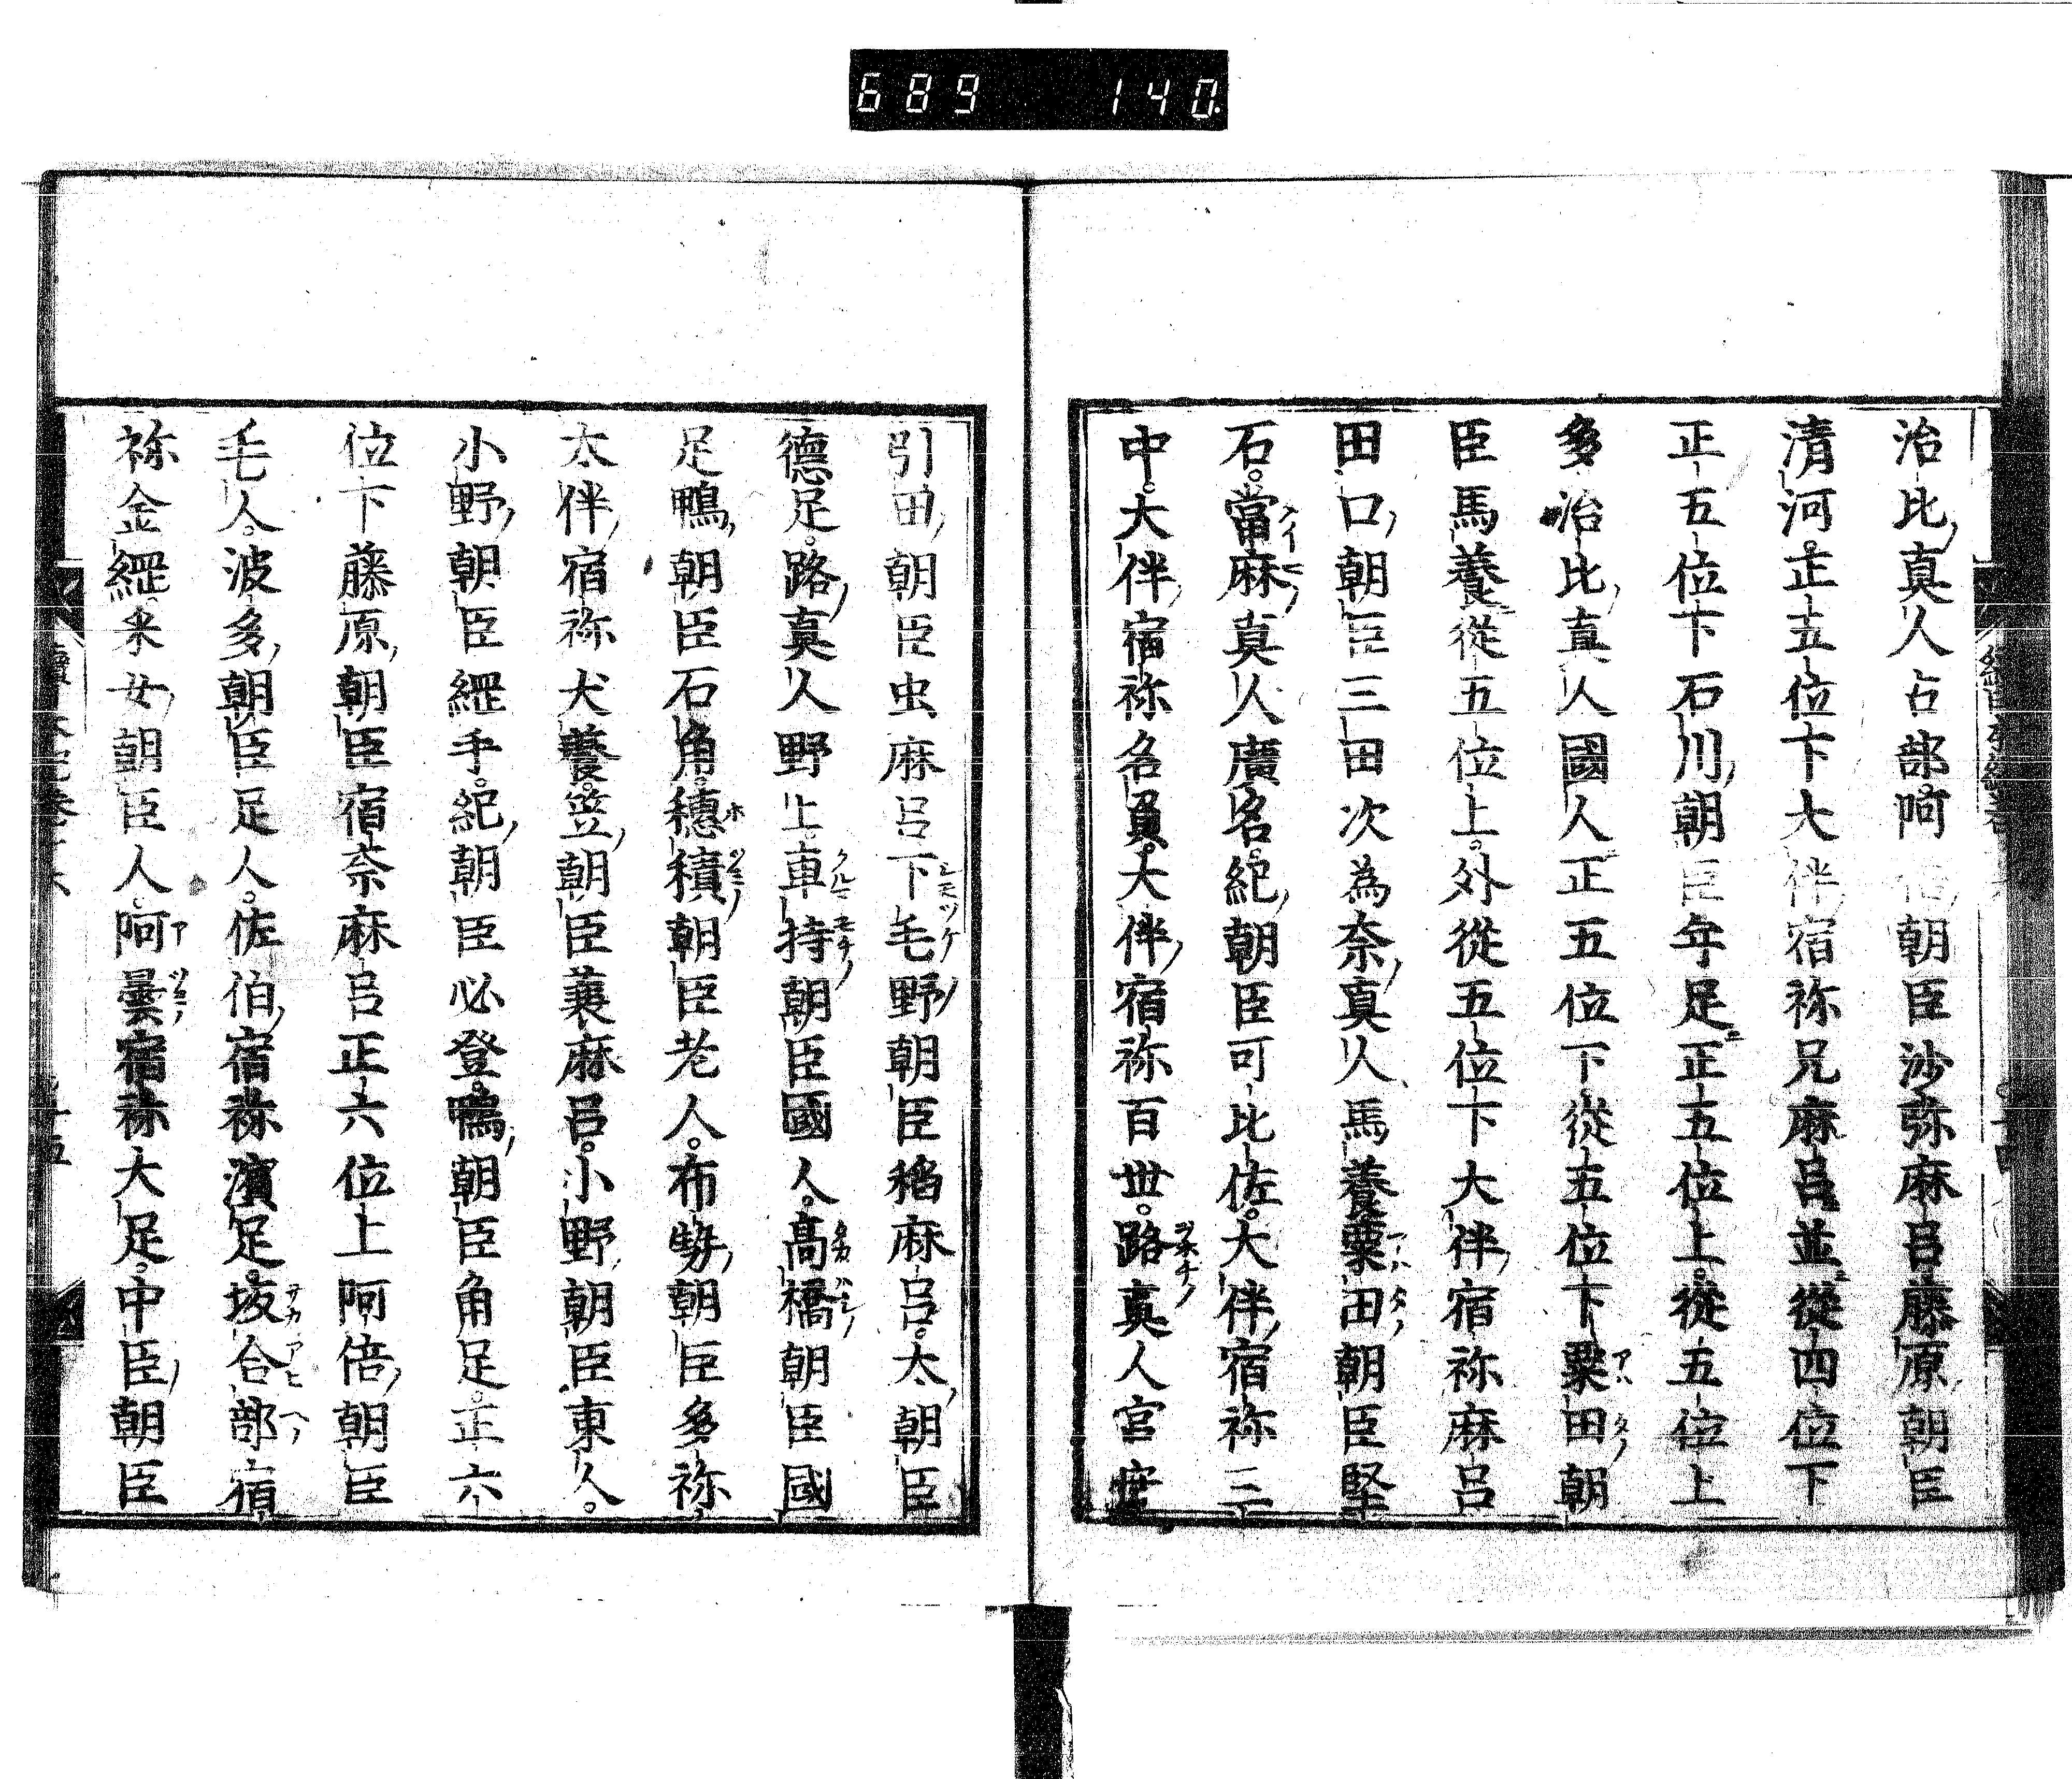 689 140
治比真人占部阿倍朝臣沙弥麻呂藤原朝臣
清河正五位下大伴宿祢兄麻呂並從四位下
正五位下石川朝臣年足正五位上從五位上
多治比真人國人正五位下從五位下粟田朝
臣馬養從五位上外從五位下大伴宿祢麻呂
田口朝臣三田次為奈真人馬養粟田朝臣堅
石當麻真人廣名紀朝臣可比佐大伴宿祢三
中大伴宿祢名負大伴宿祢百世路真人宮守
引田朝臣虫麻呂下毛野朝臣稻麻呂太朝臣
德足路真人野上車持朝臣國人高橋朝臣國
足鴨朝臣石角穗積朝臣老人布勢朝臣多祢
大伴宿祢犬養笠朝臣蓑麻呂小野朝臣東人
小野朝臣綱手紀朝臣必登鴨朝臣角足正六
位下藤原朝臣宿奈麻呂正六位上阿倍朝臣
毛人波多朝臣足人佐伯宿祢濱足坂合部宿
祢金綱采女朝臣人阿曇宿祢大足中臣朝臣